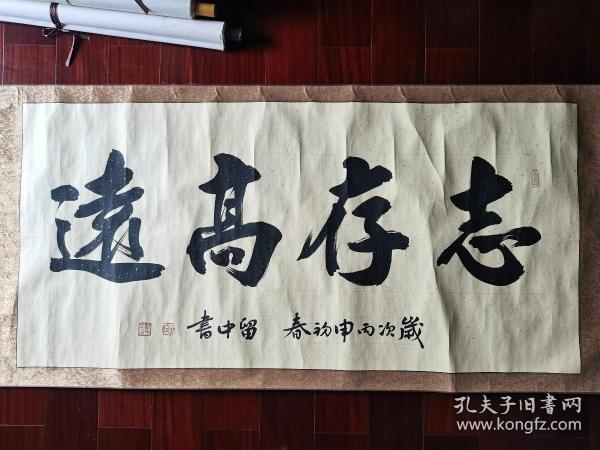 志存高遠
歲次丙申初春 留中書
孔夫子旧書网
www.kongfz.com